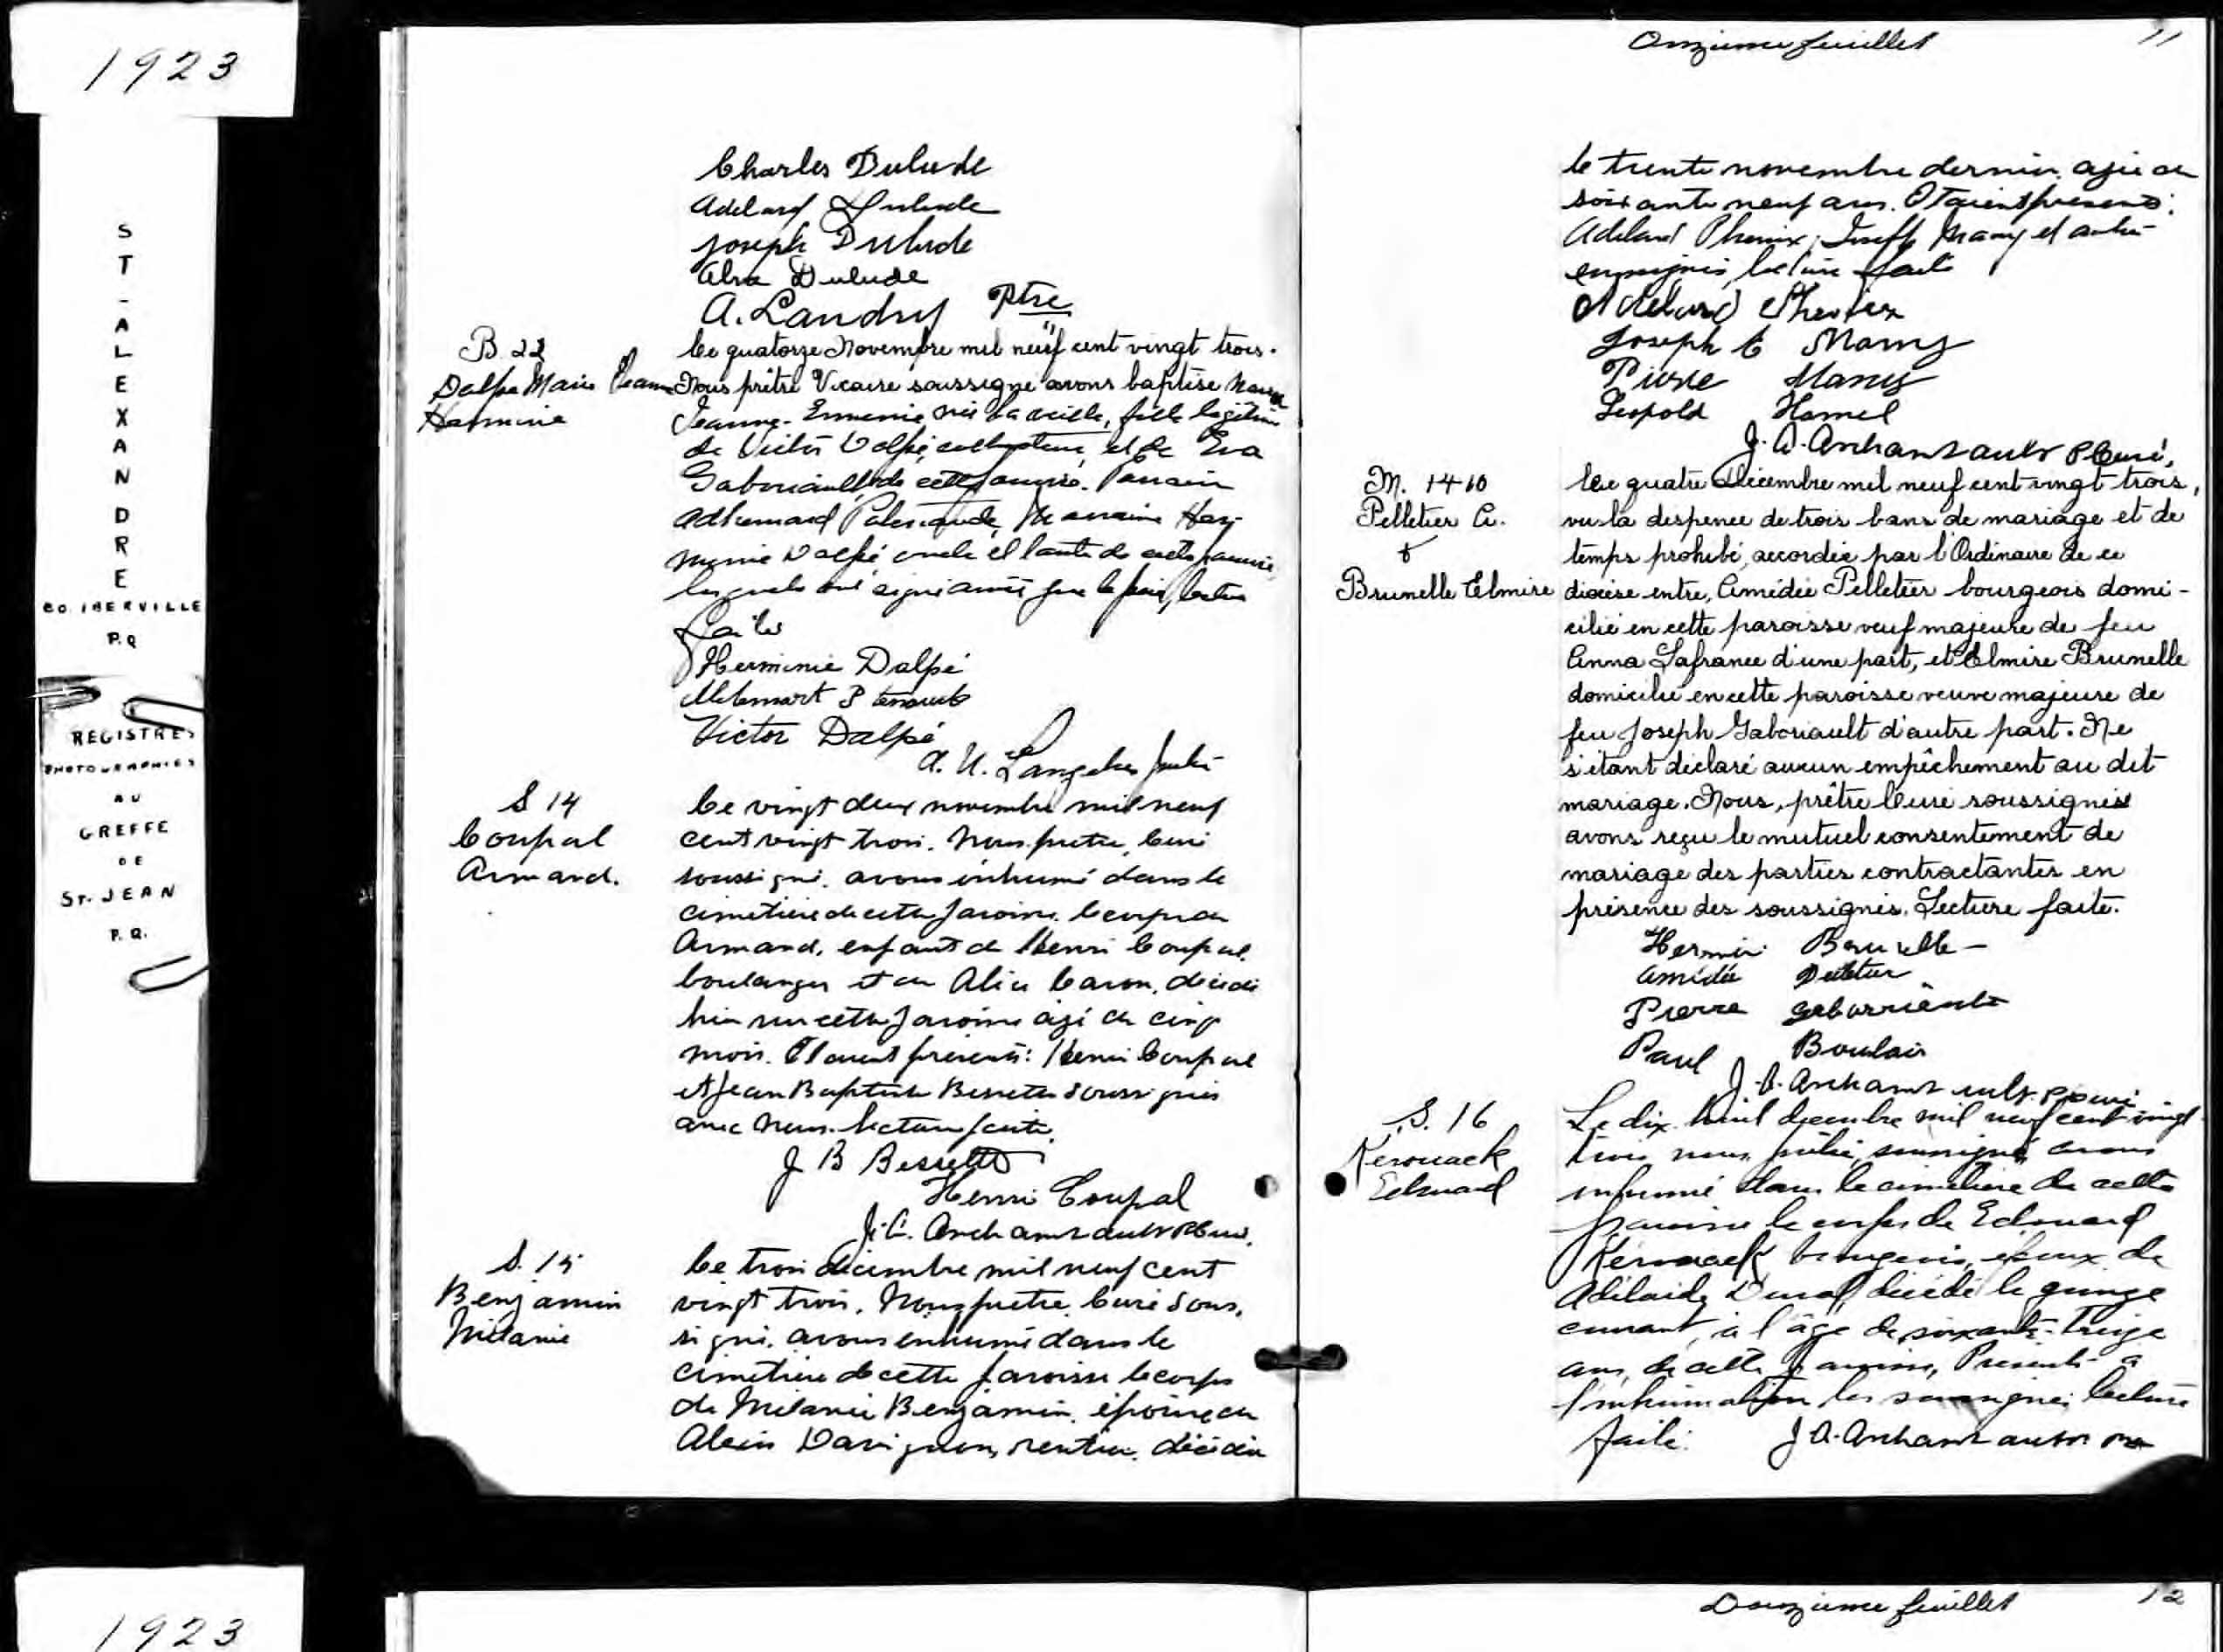 1923
ST-ALEXANDRE
CO. IBERVILLE
P.Q
REGISTRES
PHOTOGRAPHIES
AU
GREFFE
DE
ST. JEAN
P.Q.
Charles Dulude
Adelard Dulude
Joseph Dulude
Alva Dulude
A. Landry Ptre
B. 22
Dalpé Marie Jeanne
Hermine
Le quatorze Novembre mil neuf cent vingt trois.
Nous prêtre Vicaire soussigné avons baptisé Marie
Jeanne-Ermenie née la veille, fille légitime
de Victor Dalpé, cultivateur, et de Eva
Gaboriault, de cette paroisse. Parrain
Adhemard, Marraine Her-
minie Dalpé oncle et tante de cette paroisse,
lesquels ont signé avec le père, lecture
faite
Herminie Dalpé
Victor Dalpé
S 14
Coupal
Armand.
Le vingt deux novembre mil neuf
cent vingt trois. Nous prêtre, curé
soussigné. avons inhumé dans le
cimetière de cette paroisse. le corps de
Armand, enfant de Henri Coupal.
boulanger et de Alice Caron, décédé
hier en cette paroisse agé de cinq
mois. Etaient présents: Henri Coupal
et Jean Baptiste Bessette soussignés
avec nous. lecture faite.
J B Bessette
Henri Coupal
J. A. Archambault Pt Curé.
S. 15
Benjamin
Mélanie
Le trois décembre mil neuf cent
vingt trois. Nous prêtre, curé sous.
signé. avons inhumé dans le
cimetière de cette paroisse le corps
de Mélanie Benjamin. épouse de
Alexis Davignon, rentier. décédée
Onzieme feuillet 11
le trente novembre dernier. agée de
soixante neuf ans. Etaient présents:
Adelard Phenix, Joseph Many et autres
soussignés, lecture faite
Adelard Phenix
Joseph E Many
Pierre Many
Leopold Hamel
J. A. Archambault Pt Curé,
M. 1410
Pelletier A.
&
Brunelle Elmire
Le quatre Décembre mil neuf cent vingt trois,
vu la dispence de trois bans de mariage et de
temps prohibé, accordée par l'Ordinaire de ce
diocèse entre, Amédée Pelletier bourgeois domi-
cilié en cette paroisse veuf majeure de feu
Anna Lafrance d'une part, et Elmire Brunelle
domicilié en cette paroisse veuve majeure de
feu Joseph Gaboriault d'autre part. Ne
s'étant déclaré aucun empêchement au dit
mariage. Nous, prêtre Curé soussignés
avons reçu le mutuel consentement de
mariage des parties contractantes en
présence des soussignés. Lecture faite.
Brunelle
Amédée Peletier
Pierre
Paul Boulais
J. A. Archambault. Pt Curé
S. 16
Kerouack
Edouard
Le dix-huit decembre mil neuf cent vingt-
trois nous prêtre soussigné avons
inhumé dans le cimetière de cette
paroisse le corps de Edouard
Kerouack bourgeois, époux de
Adélaide Duval, décédé le quinze
courant, à l'âge de soixante-treize
ans, de cette paroisse, Présents à
l'inhumation les soussignés lecture
faite. J A. Archambault Ptre
1923
Douzieme feuillet 12